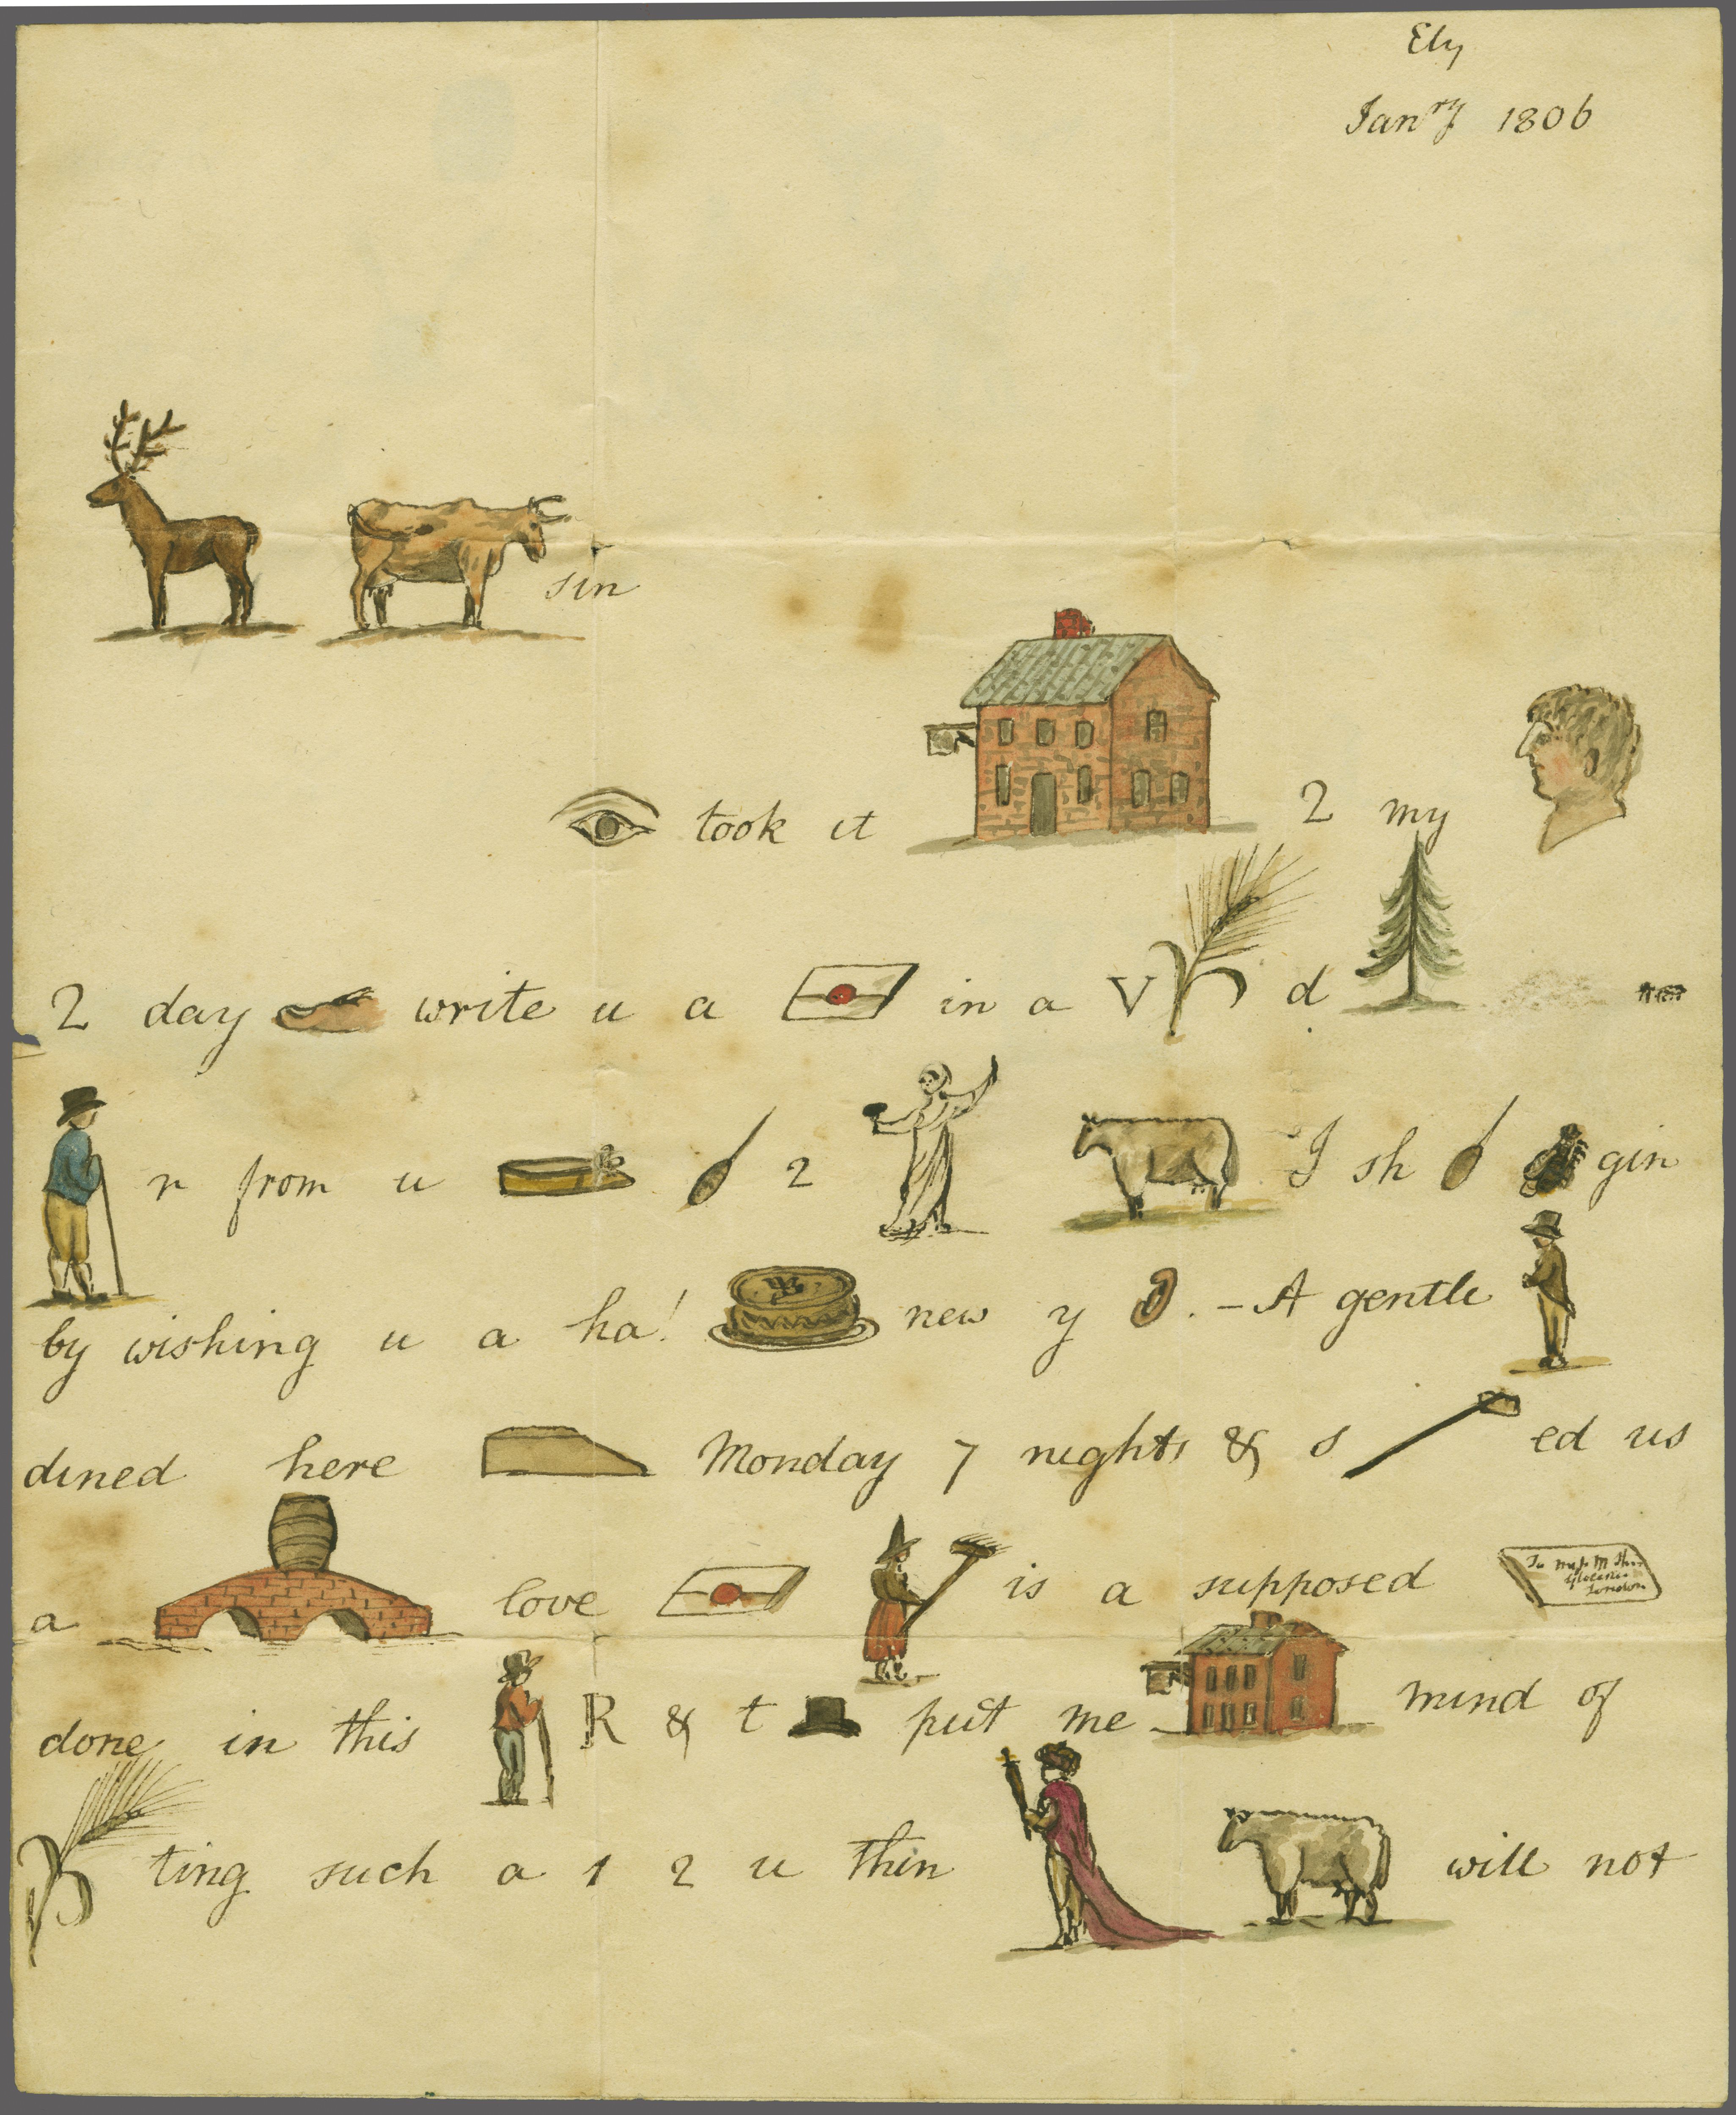 Ely
Janry 1806
sin
took it 2 my
2 day write u a in a V d
n from u 2 I sh gin
by wishing u a ha! new y . - A gentle
dined here Monday 7 nights & s ed us
a love is a supposed
To Miss M
London
done in this R & t put me mind of
ting such a 1 2 u thin will not